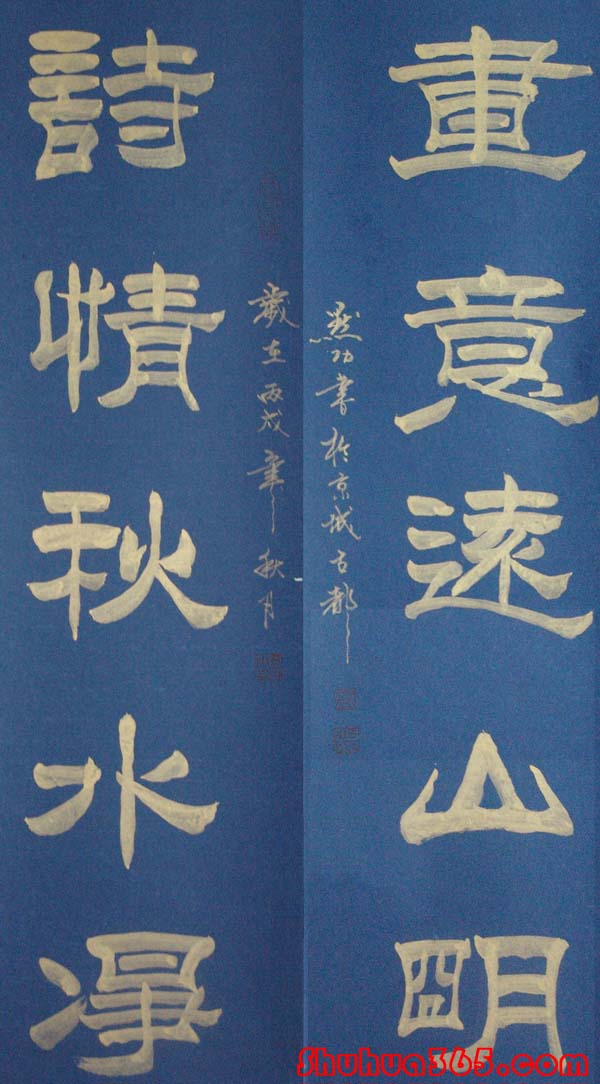 畫意遠山明
默功書於京城古都
歲在丙戌年秋月
詩情秋水凈
Shuhua365.com